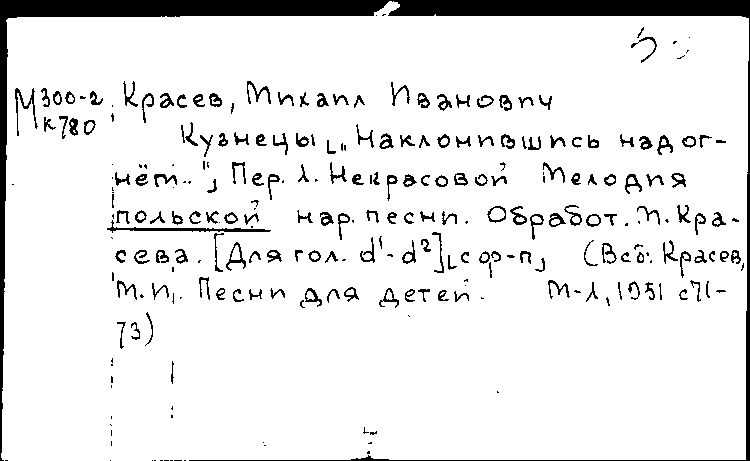 М300-2 Красев, Михаил Иванович
К780
Кузнецы ["Наклонившись над ог-
нём.."] Пер. Л. Некрасовой Мелодия
польской нар. песни. Обработ. М. Кра-
сева. [Для гол. d¹-d²] [с ф-п] (В сб: Красев,
М. И. Песни для детей. М-Л, 1951 с71-
73)